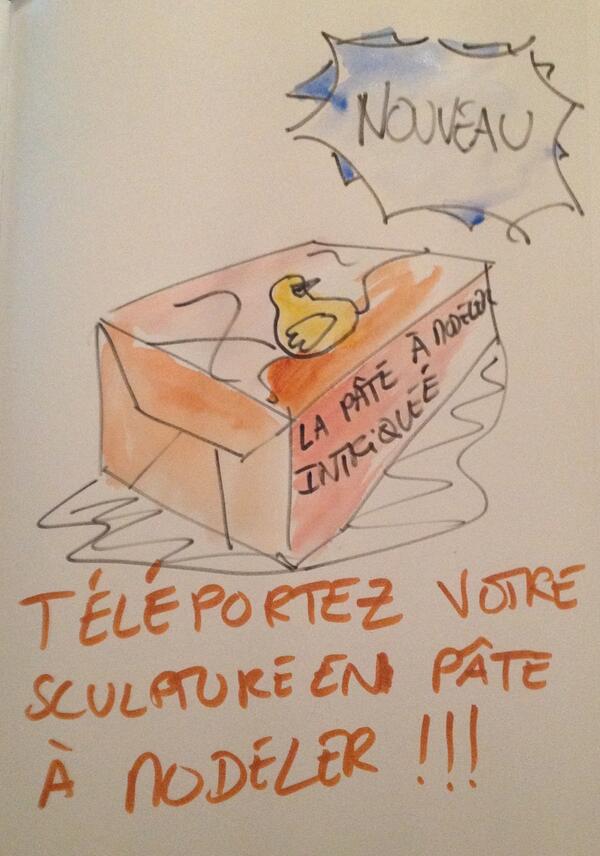 NOUVEAU
LA PÂTE À MODELER
INTRIQUÉE
TÉLÉPORTEZ VOTRE
SCULPTURE EN PÂTE
À MODELER !!!